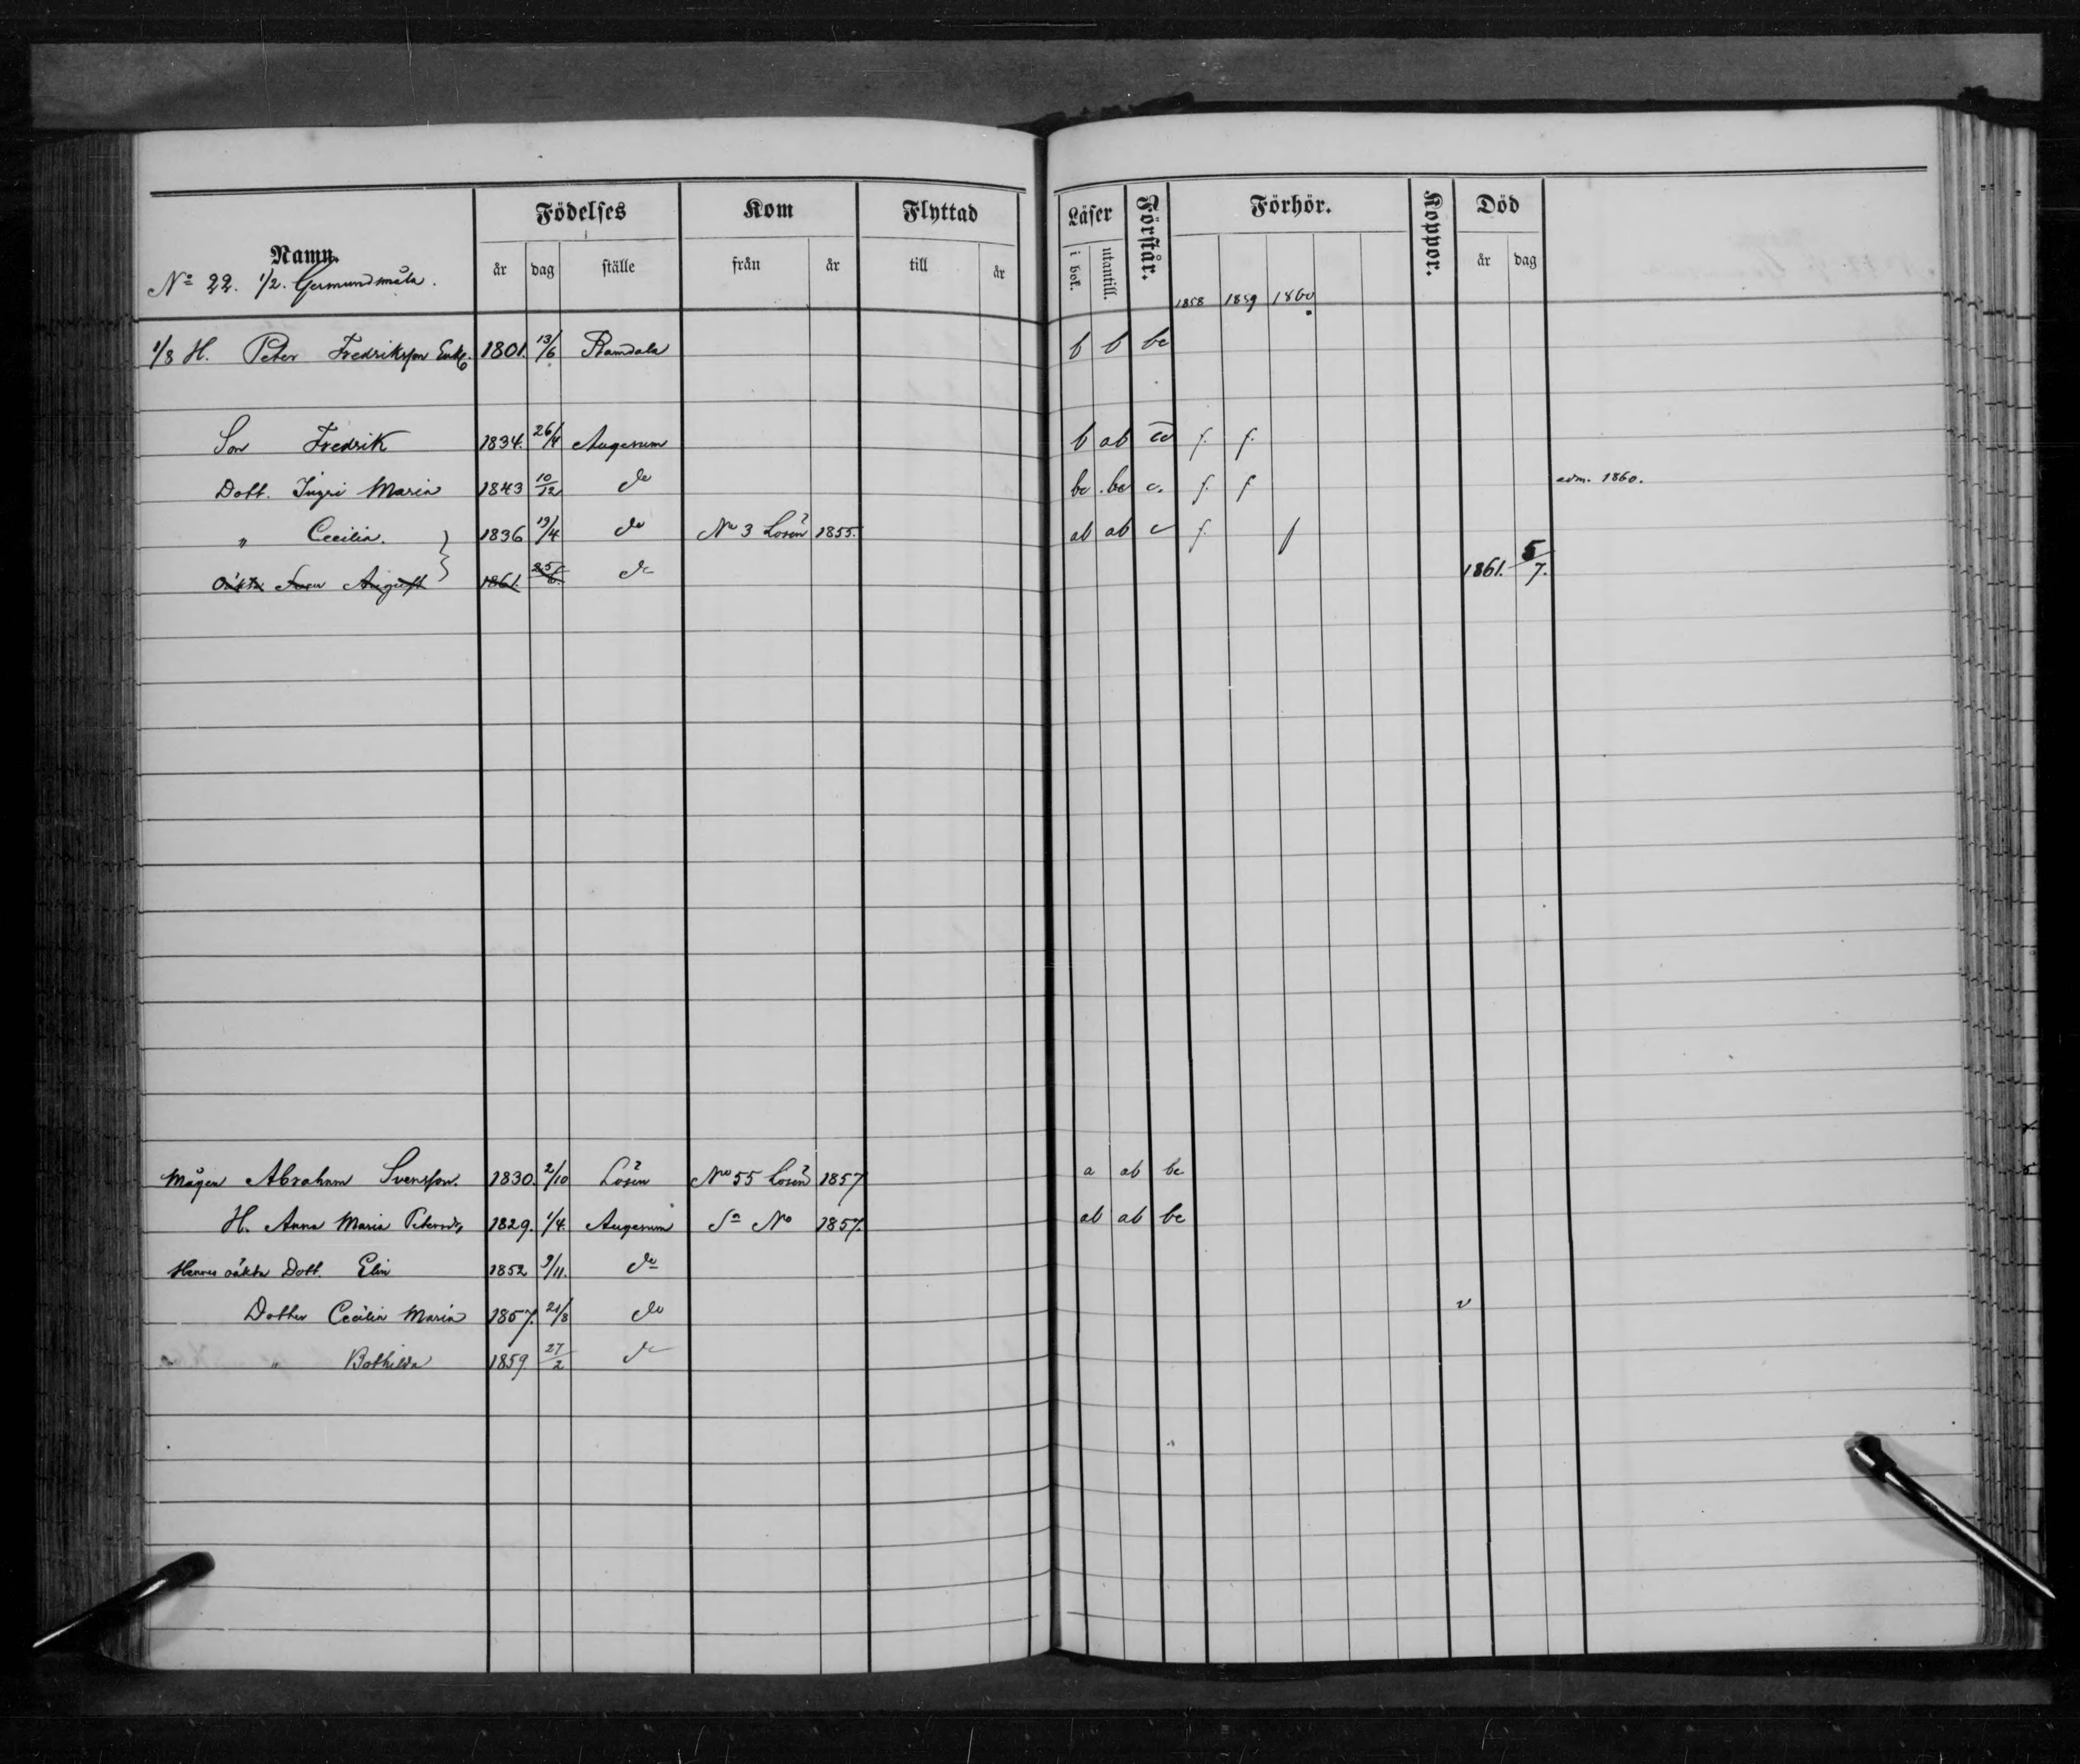 Namn. Födelses Kom Flyttad Läser Förstår. Förhör. Koppor. Död
år dag ställe från år till år i bok. utantill. år dag
No 22. 1/2. Germundmåla. 1858 1859 1860
1/8 H. Peter Fredriksson Enkl. 1801. 13/6 Ramdala b b bc
Son Fredrik 1834. 26/4 Augerum b ab cd f. f.
Dott. Ingri Maria 1843 10/12 do bc bc c. f. f adm. 1860.
" Cecilia. 1836 19/4 do No 3 Lösen 1855. ab ab c f. f
Oäkta Sven August 1861. 25/6. do 1861. 5/7.
Mågen Abraham Svensson. 1830. 2/10 Lösen No 55 Lösen 1857 a ab bc
H. Anna Maria Petersdr 1829. 1/4. Augerum Sa No 1857. ab ab bc
Hennes oäkta Dott. Elin 1852 9/11. do
Dotter Cecilia Maria 1857. 21/8 do v
" Bothilda 1859 27/2 do